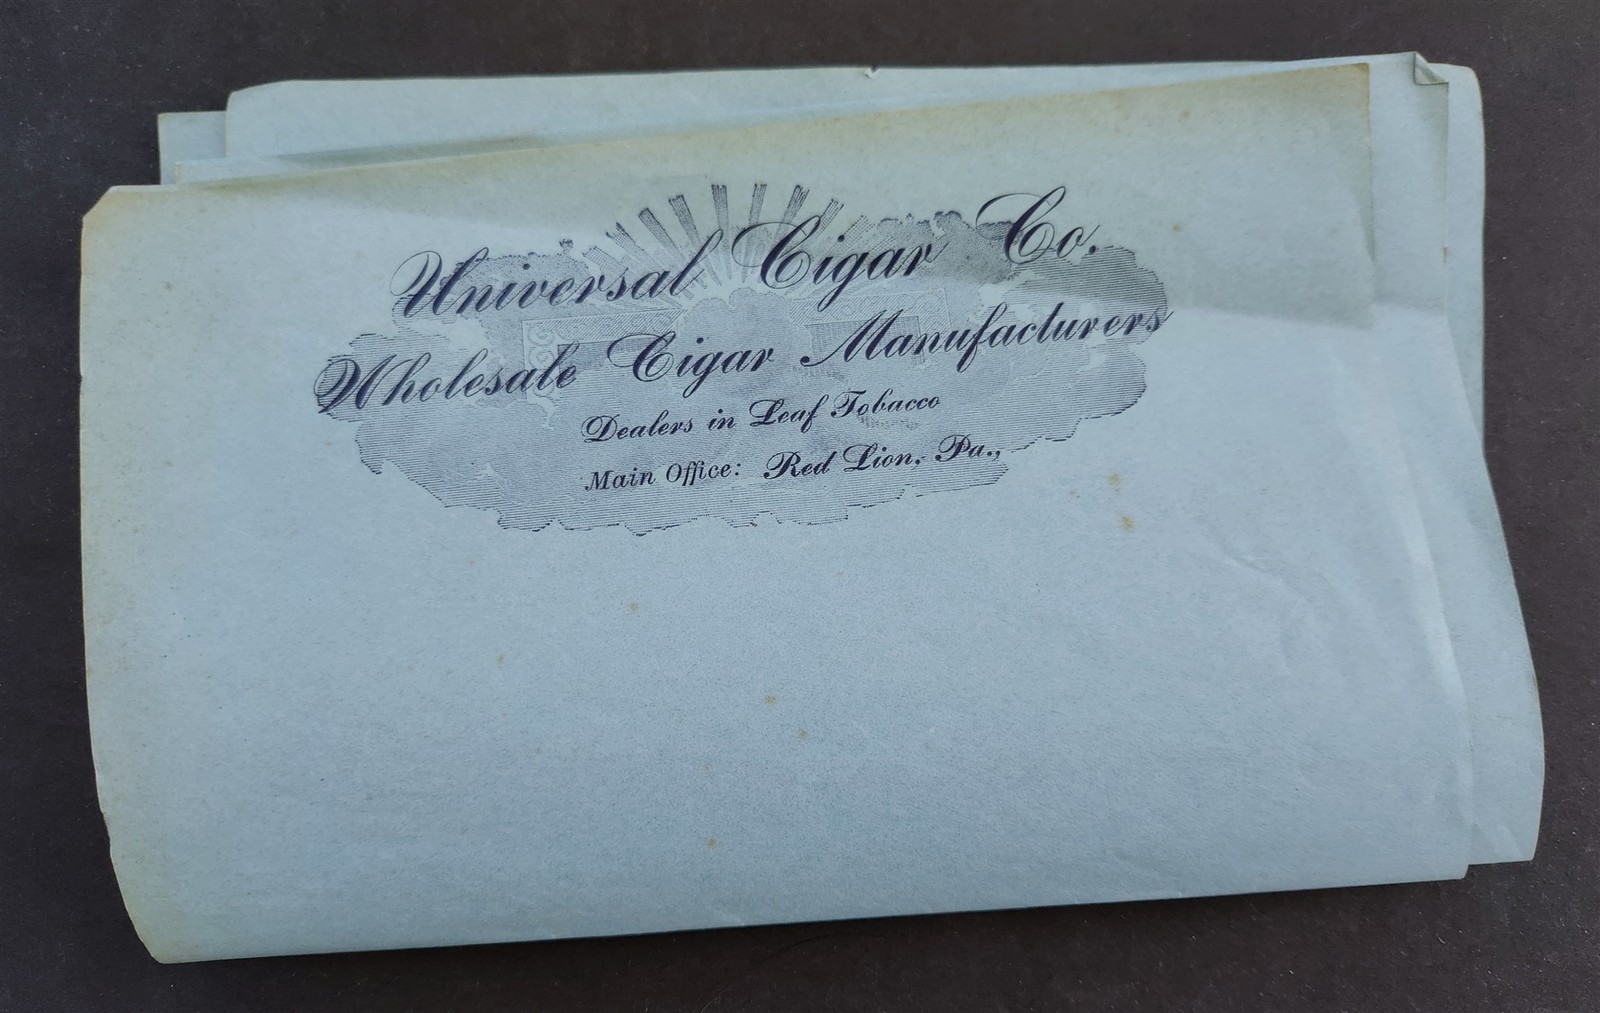 Universal Cigar Co.
Wholesale Cigar Manufacturers
Dealers in Leaf Tobacco
Main Office: Red Lion, Pa.,